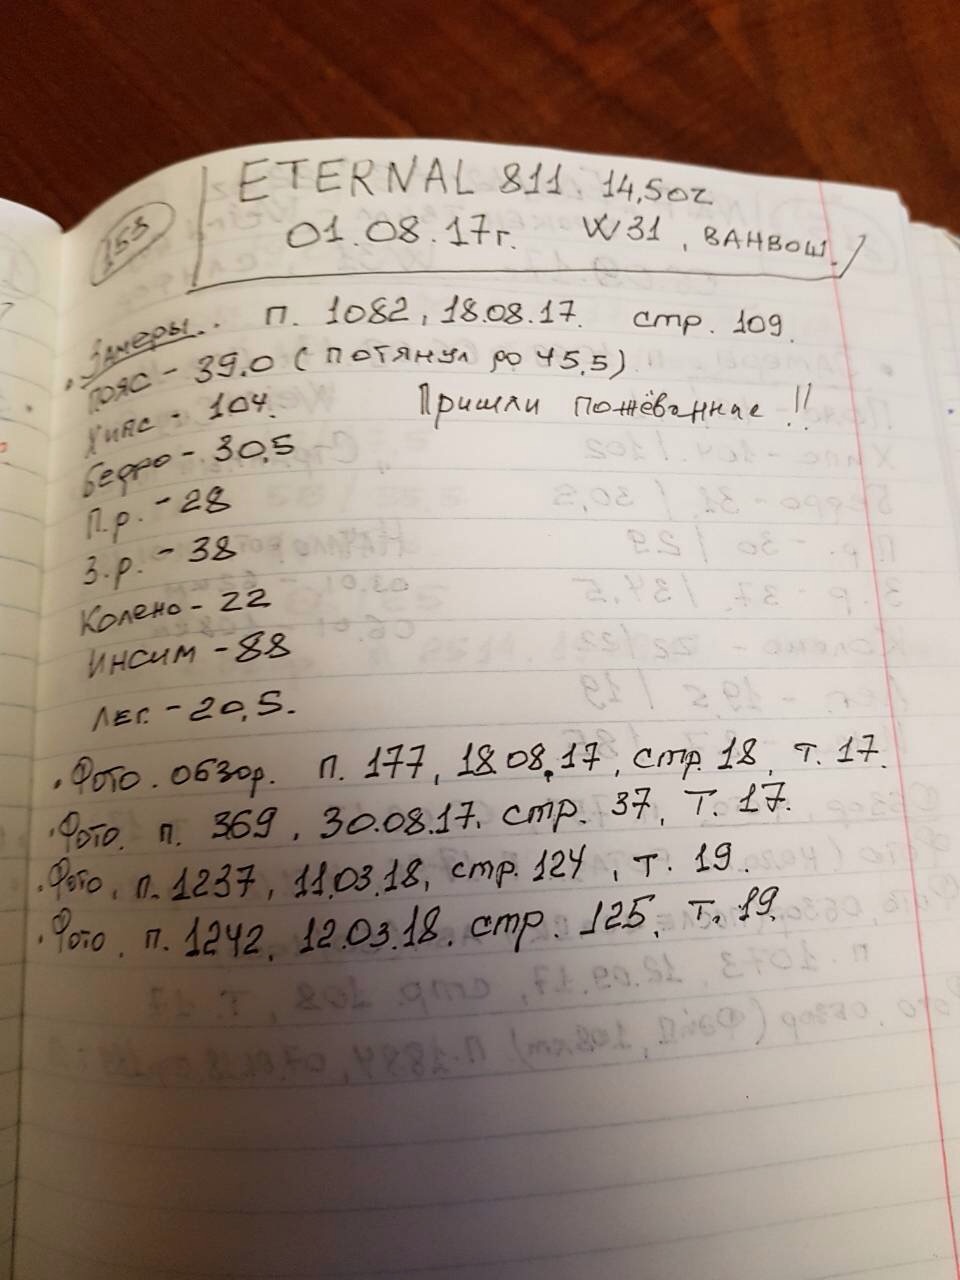 153
ETERNAL 811. 14,5oz
01.08.17г. W31, ВАНВОШ.
Замеры.. п. 1082, 18.08.17. стр. 109.
Пояс - 39,0 (потянул до 45,5)
Хипс - 104. Пришли пожёванные !!
Бедро - 30,5
П.р. - 28
З.р. - 38
Колено - 22
Инсим - 88
Лег. - 20,5.
Фото. обзор. п. 177, 18.08.17, стр. 18, т. 17.
Фото. п. 369, 30.08.17. стр. 37, т. 17.
Фото, п. 1237, 11.03.18, стр. 124, т. 19.
Фото. п. 1242, 12.03.18. стр. 125, т. 19.